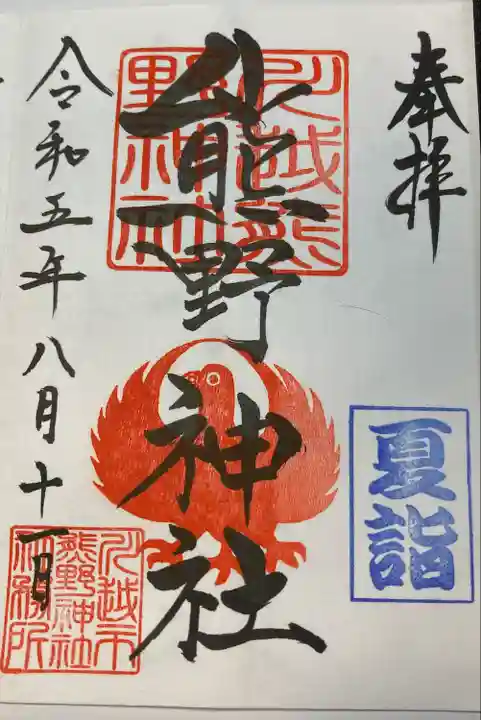 奉拝
夏詣
川越熊
野神社
熊野神社
令和五年八月十一日
川越市
熊野神社
社務所